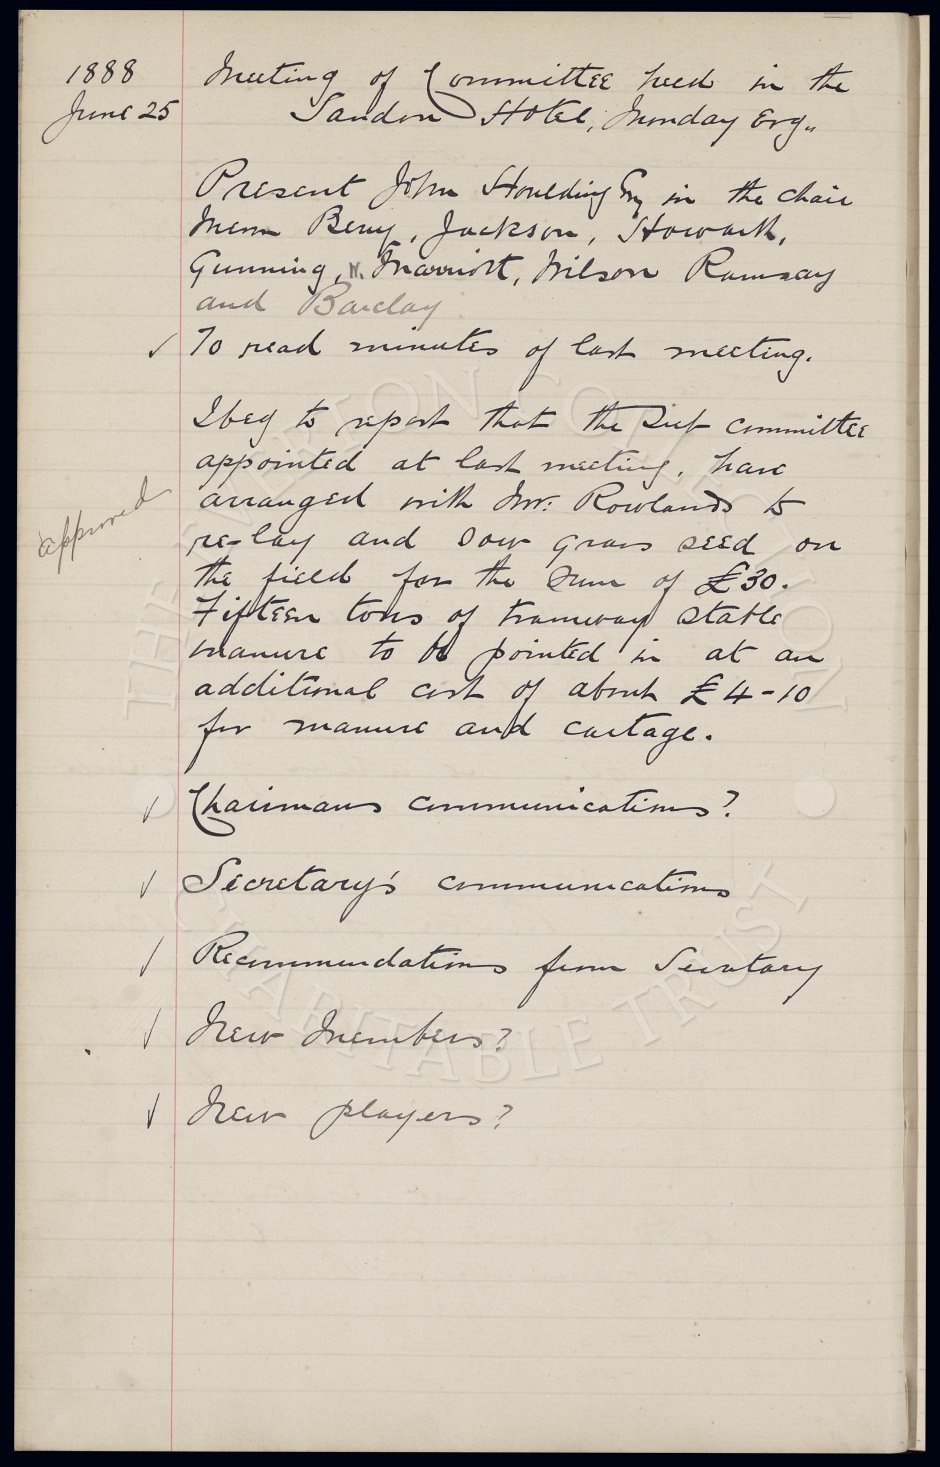 1888 Meeting of Committee held in the
June 25 Sandon Hotel, Monday Evg.,
Present John Houlding Esq in the chair
Messrs Berry, Jackson, Howarth,
Gunning, N. Marriott, Wilson Ramsay
and Barclay
✓ To read minutes of last meeting.
I beg to report that the Sub committee
appointed at last meeting, have
approved
arranged with Mr. Rowlands to
re-lay and sow grass seed on
the field for the sum of £30.
Fifteen tons of tramway stable
manure to be pointed in at an
additional cost of about £4-10
for manure and cartage.
✓ Chairmans communications?
✓ Secretary's communications
✓ Recommendations from Secretary
✓ New Members?
✓ New players?
THE EVERTON COLLECTION
• CHARITABLE TRUST •